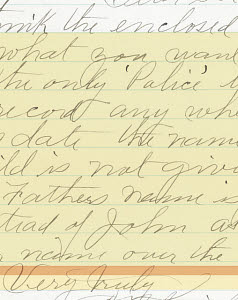 think the enclosed
what you want
the only 'Police'
record any whe
date the name
ild is not giv
Fathers name is
stead of John as
name over the
Very truly